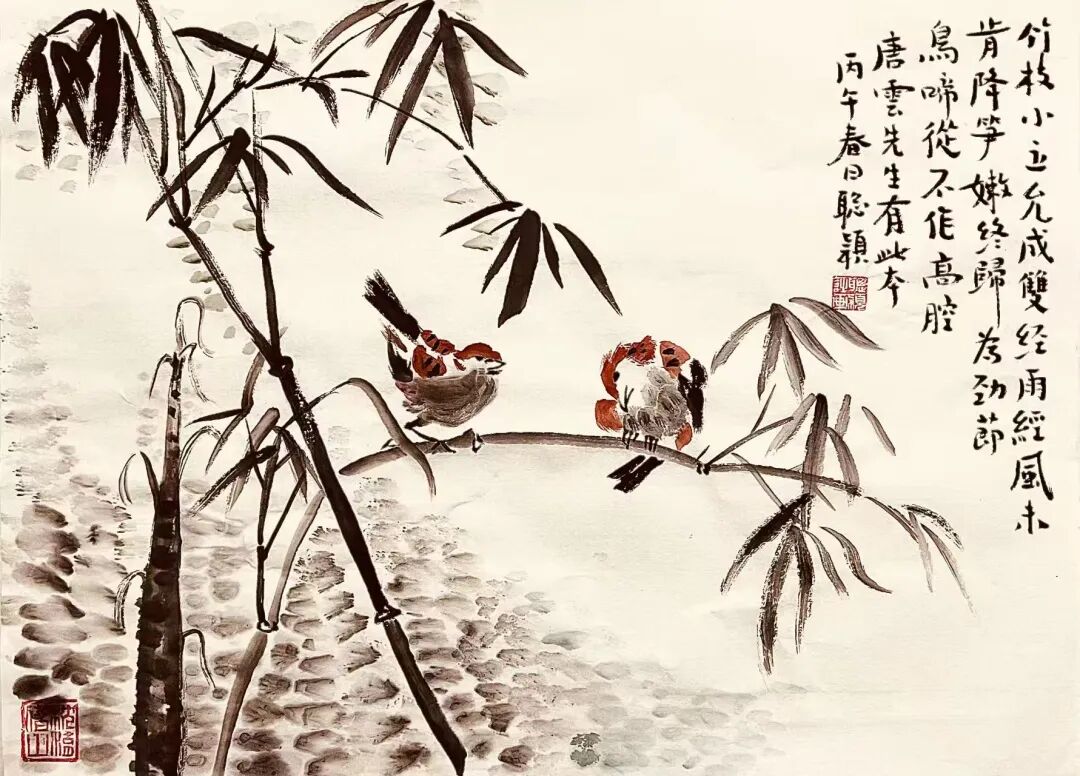 竹枝小立允成雙经雨經風未
肯降笋嫩终歸为劲節
鳥啼從不作高腔
唐雲先生有此本
丙午春日聪颖